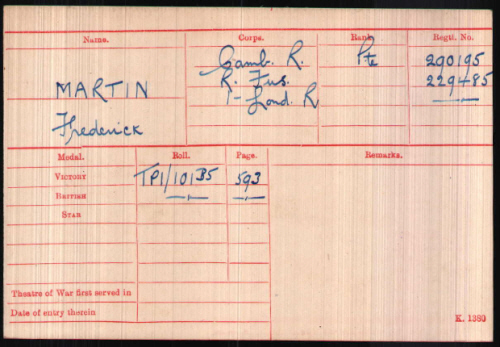 Name. Corps. Rank Regtl. No.
Camb. R. Pte 290195
MARTIN R. Fus. 229485
Frederick 1-Lond. R
Medal. Roll. Page. Remarks.
Victory TP1/101B5 593
British
Star
Theatre of War first served in
Date of entry therein
K. 1380